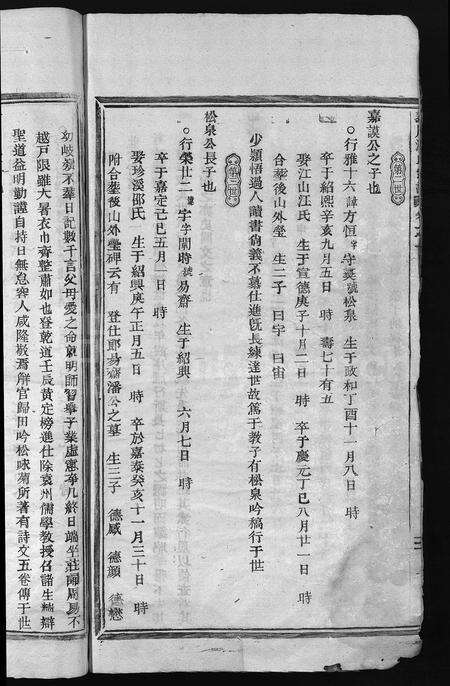 第二世
嘉謨公之子也
○行雅十六 諱方恒 字守延 號松泉 生于政和丁酉十一月八日 時
卒于紹熙辛亥九月五日 時 壽七十有五
娶江山江氏 生于宣德庚子十月二日 時 卒于慶元丁巳八月廿一日 時
合葬後山外塋 生二子 曰宇 曰宙
少穎悟過人讀書尚義不慕仕進既長練達世故篤于教子有松泉吟稿行于世
第三世
松泉公長子也
○行榮廿二 諱宇 字開時 號易齋 生于紹興 六月七日 時
卒于嘉定己巳五月一日 時
娶珍溪邵氏 生于紹興庚午正月五日 時 卒於嘉泰癸亥十一月三十日 時
附合葬後山外塋碑云有 登仕郎易齋潘公之墓 生三子 德威 德顯 德懋
幼岐嶷不羣日記數千言父母愛之命就明師習舉子業虛憲奉几終日端坐莊闈周易不
越戸限雖大暑衣巾齊整肅如也登乾道壬辰黃定榜進士除袁州儒學教授召諸生講辯
聖道益明勤謹自持日無怠容人咸隆敬焉解官歸田吟松咏菊所著有詩文五卷傳于世